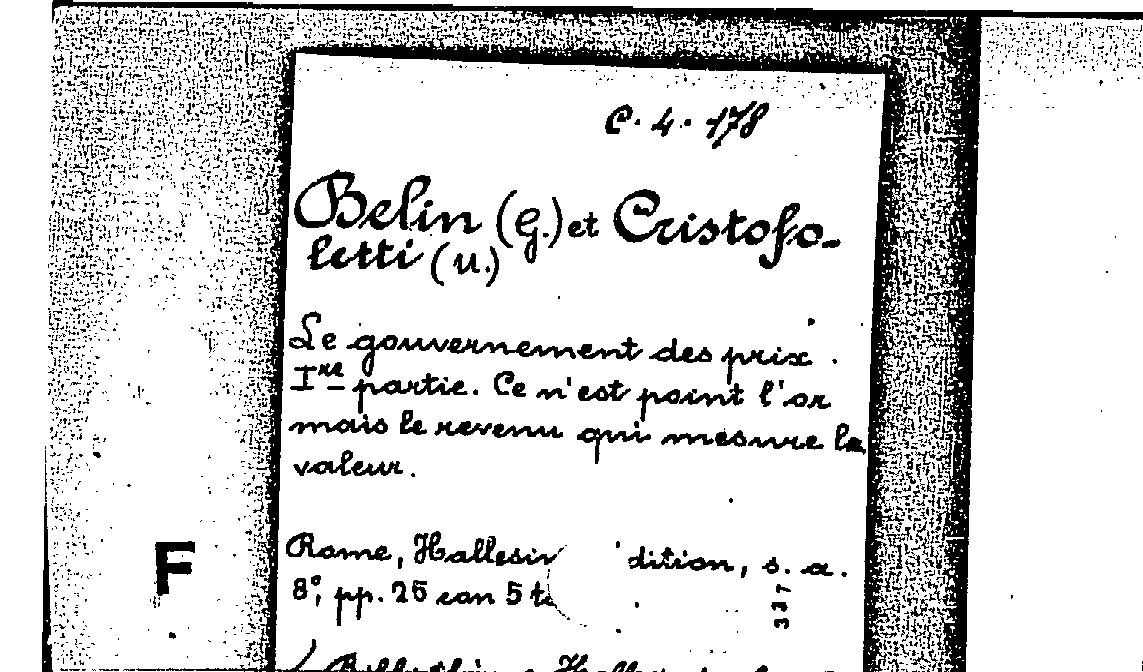 C. 4. 178
Belin (G.) et Cristofo-
letti (U.)
Le gouvernement des prix.
Ire partie. Ce n'est point l'or
mais le revenu qui mesure la
valeur.
Rome, dition, s. a.
8°, pp. 25 con 5
337
F